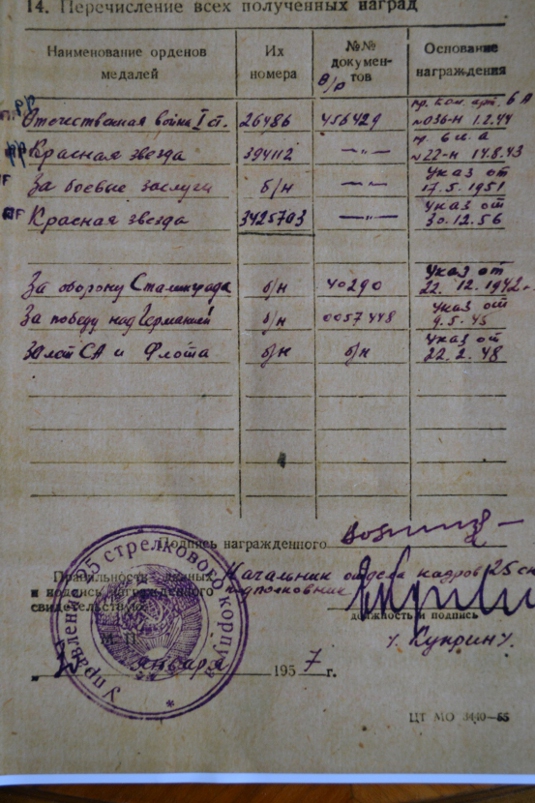 14. Перечисление всех полученных наград
Наименование орденов медалей
Их номера
№№ документов
Основание награждения
в/р
Отечественная война I ст. 26486 456429 пр. ком. арт. 6 А №036-н 1.2.44
Красная звезда 394112 —"— №22-н 14.8.43
За боевые заслуги б/н —"— Указ от 17.5.1951
Красная звезда 3425703 —"— Указ от 30.12.56
За оборону Сталинграда б/н 40290 Указ от 22.12.1942г.
За победу над Германией б/н 0057448 Указ от 9.5.45
30 лет СА и Флота б/н б/н Указ от 22.2.48
Подпись награжденного
Правильность данных
и подпись награжденного
свидетельствую:
Начальник отдела кадров 25 ск
подполковник
должность и подпись
/Куприн/.
М. П.
" января 1957 г.
Управление 25 стрелкового корпуса
ЦТ МО 3440—55